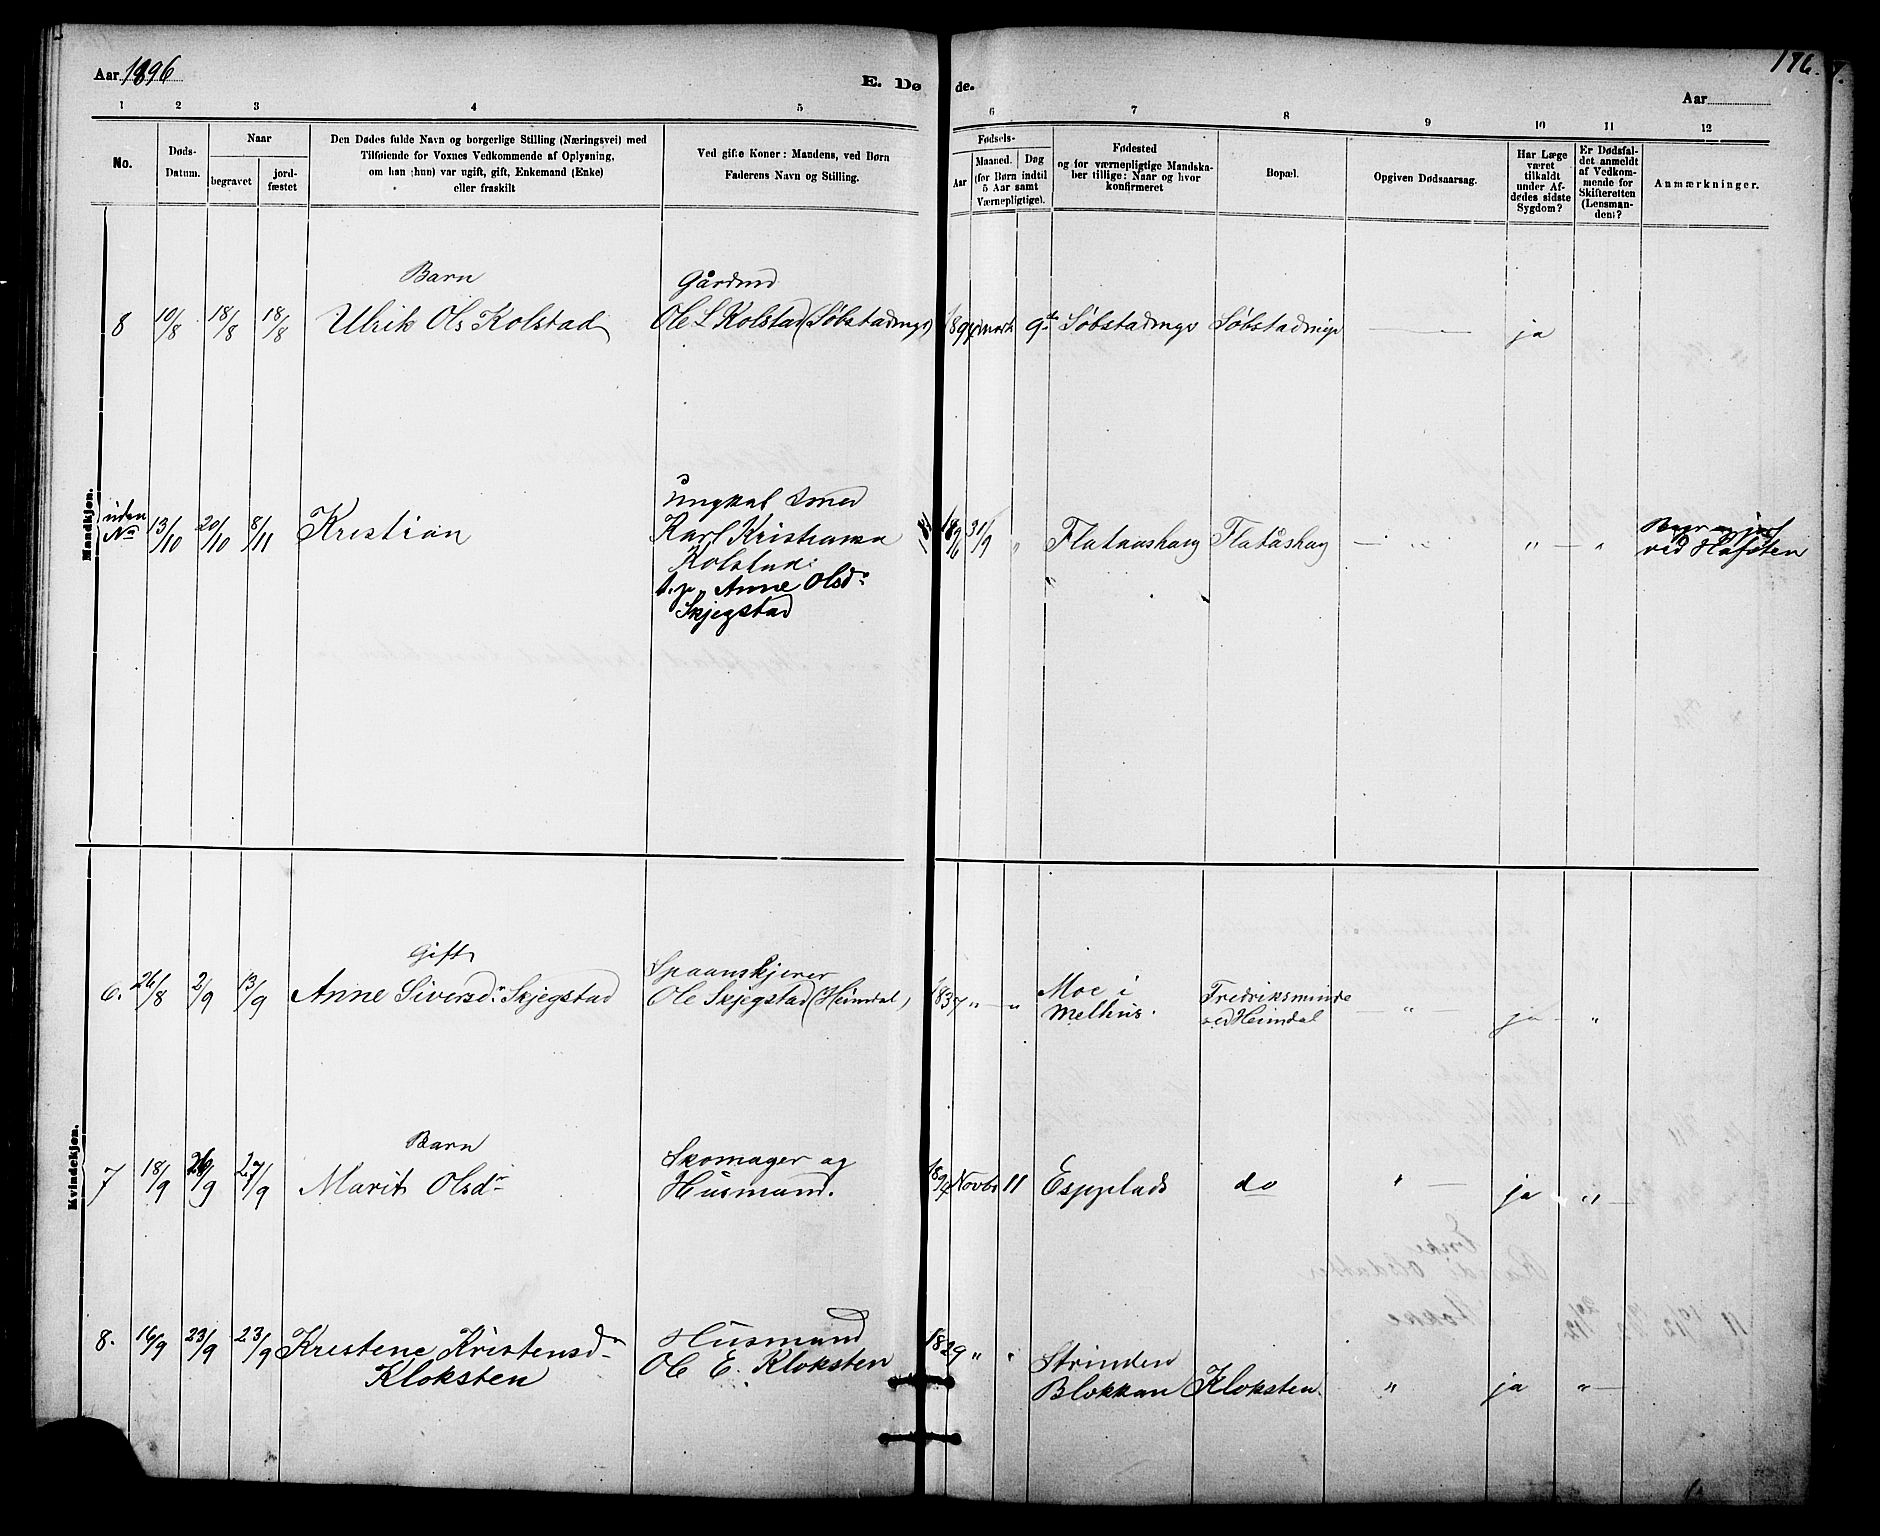 Aar 1896
E. Dø
de.
176.
Aar
1 2 3 4 5 6 7 8 9 10 11 12
No.
Døds-
Datum.
Naar
begravet
jord-
fæstet
Den Dødes fulde Navn og borgerlige Stilling (Næringsvei) med
Tilføiende for Voxnes Vedkommende af Oplysning,
om han (hun) var ugift, gift, Enkemand (Enke)
eller fraskilt
Ved gifte Koner: Mandens, ved Børn
Faderens Navn og Stilling.
Fødsels-
Aar
Maaned.
Døg
(for Børn indtil
5 Aar samt
Værnepligtige).
Fødested
og for værnepligtige Mandska-
ber tillige: Naar og hvor
konfirmeret
Bopæl.
Opgiven Dødsaarsag.
Har Læge
været
tilkaldt
under Af-
dødes sidste
Sygdom?
Er Dødsfal-
det anmeldt
af Vedkom-
mende for
Skifteretten
(Lensman-
den)?
Anmærkninger.
Mandkjøn.
Barn
Gårdmd
8 10/8 18/8 18/8 Ulrik Ols Kolstad Ole L Kolstad (Løbstadmyr) Marts 9de Løbstadmyr Løbstadmyr ja
uden
No 13/10 20/10 8/11 Kristian
Ungkal Smed
Karl Kristiansen
Kolstad
Anne Olsd.
Skjegstad
1896 Flataashaug Flatåshaug " "
ved Hafsten
Kvindekjøn.
Gift
6. 26/8 2/9 13/9 Anne Siversd. Skjegstad
Spaanskjærer
Ole Skjegstad (Heimdal)
1837 " "
Moe i
Melhus.
Fredriksminde
ved Heimdal
" ja "
Barn
7 18/9 26/9 27/9 Marit Olsd.
Skomager og
Husmand.
Novbr 11 Espplads do " ja "
8. 16/9 23/9 23/9 Kristene Kristensd.
Kloksten
Husmand
Ole E. Kloksten
1829 " "
Strinden
Blokkan Kloksten. " ja "